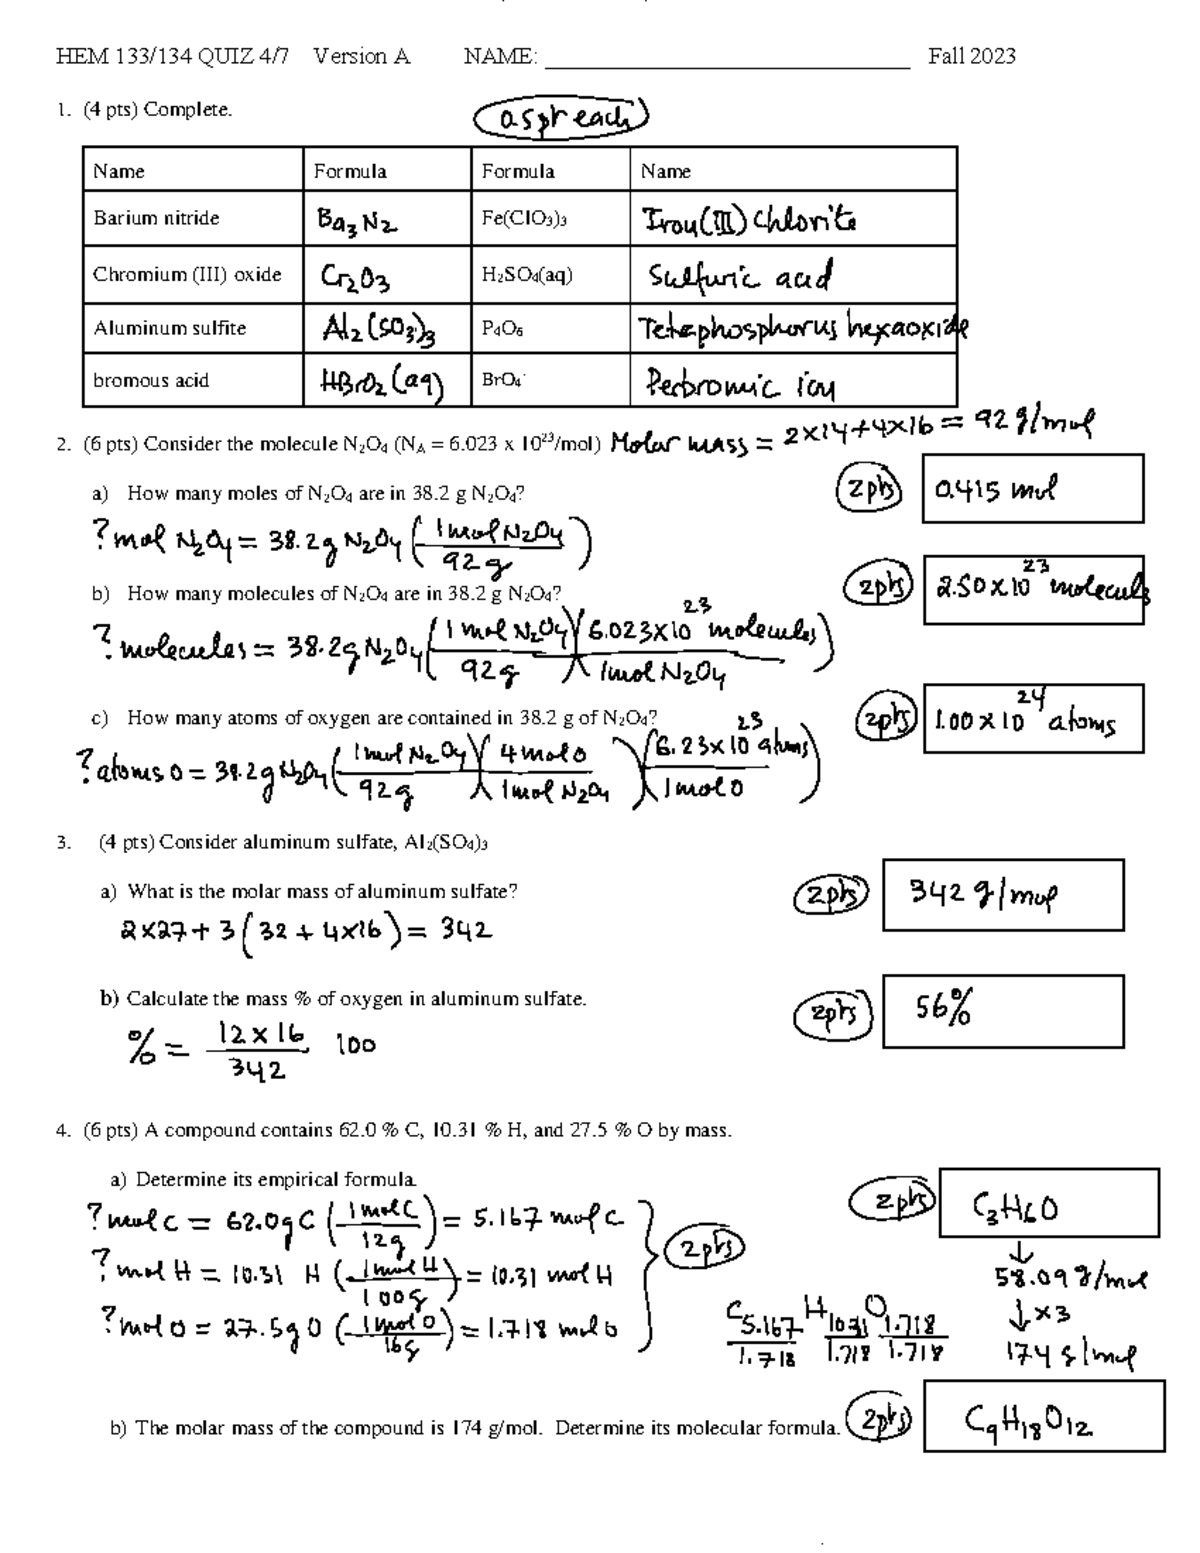 HEM 133/134 QUIZ 4/7 Version A NAME: ______________________________ Fall 2023
1. (4 pts) Complete.
0.5pt each
Name Formula Formula Name
Barium nitride Ba3N2 Fe(ClO3)3 Iron(III) Chlorite
Chromium (III) oxide Cr2O3 H2SO4(aq) Sulfuric acid
Aluminum sulfite Al2(SO3)3 P4O6 Tetraphosphorus hexaoxide
bromous acid HBrO2(aq) BrO4- Perbromic ion
2. (6 pts) Consider the molecule N2O4 (NA = 6.023 x 10^23/mol) Molar mass = 2x14+4x16 = 92 g/mol
a) How many moles of N2O4 are in 38.2 g N2O4? 2pts 0.415 mol
? mol N2O4 = 38.2g N2O4 (1mol N2O4 / 92 g)
b) How many molecules of N2O4 are in 38.2 g N2O4? 2pts 2.50x10^23 molecules
? molecules = 38.2g N2O4 (1 mol N2O4 / 92g)(6.023x10^23 molecules / 1mol N2O4)
c) How many atoms of oxygen are contained in 38.2 g of N2O4? 2pts 1.00x10^24 atoms
? atoms O = 38.2g N2O4 (1mol N2O4 / 92g)(4 mol O / 1mol N2O4)(6.23x10^23 atoms / 1mol O)
3. (4 pts) Consider aluminum sulfate, Al2(SO4)3
a) What is the molar mass of aluminum sulfate? 2pts 342 g/mol
2x27+3(32+4x16) = 342
b) Calculate the mass % of oxygen in aluminum sulfate. 2pts 56%
% = 12x16 / 342 100
4. (6 pts) A compound contains 62.0 % C, 10.31 % H, and 27.5 % O by mass.
a) Determine its empirical formula. 2pts C3H6O
? mol C = 62.0g C (1mol C / 12g) = 5.167 mol C
? mol H = 10.31 H (1mol H / 1.00g) = 10.31 mol H 2pts
? mol O = 27.5g O (1mol O / 16g) = 1.718 mol O
C 5.167/1.718 H 10.31/1.718 O 1.718/1.718
↓
58.09 g/mol
↓x3
174 g/mol
b) The molar mass of the compound is 174 g/mol. Determine its molecular formula. 2pts C9H18O12